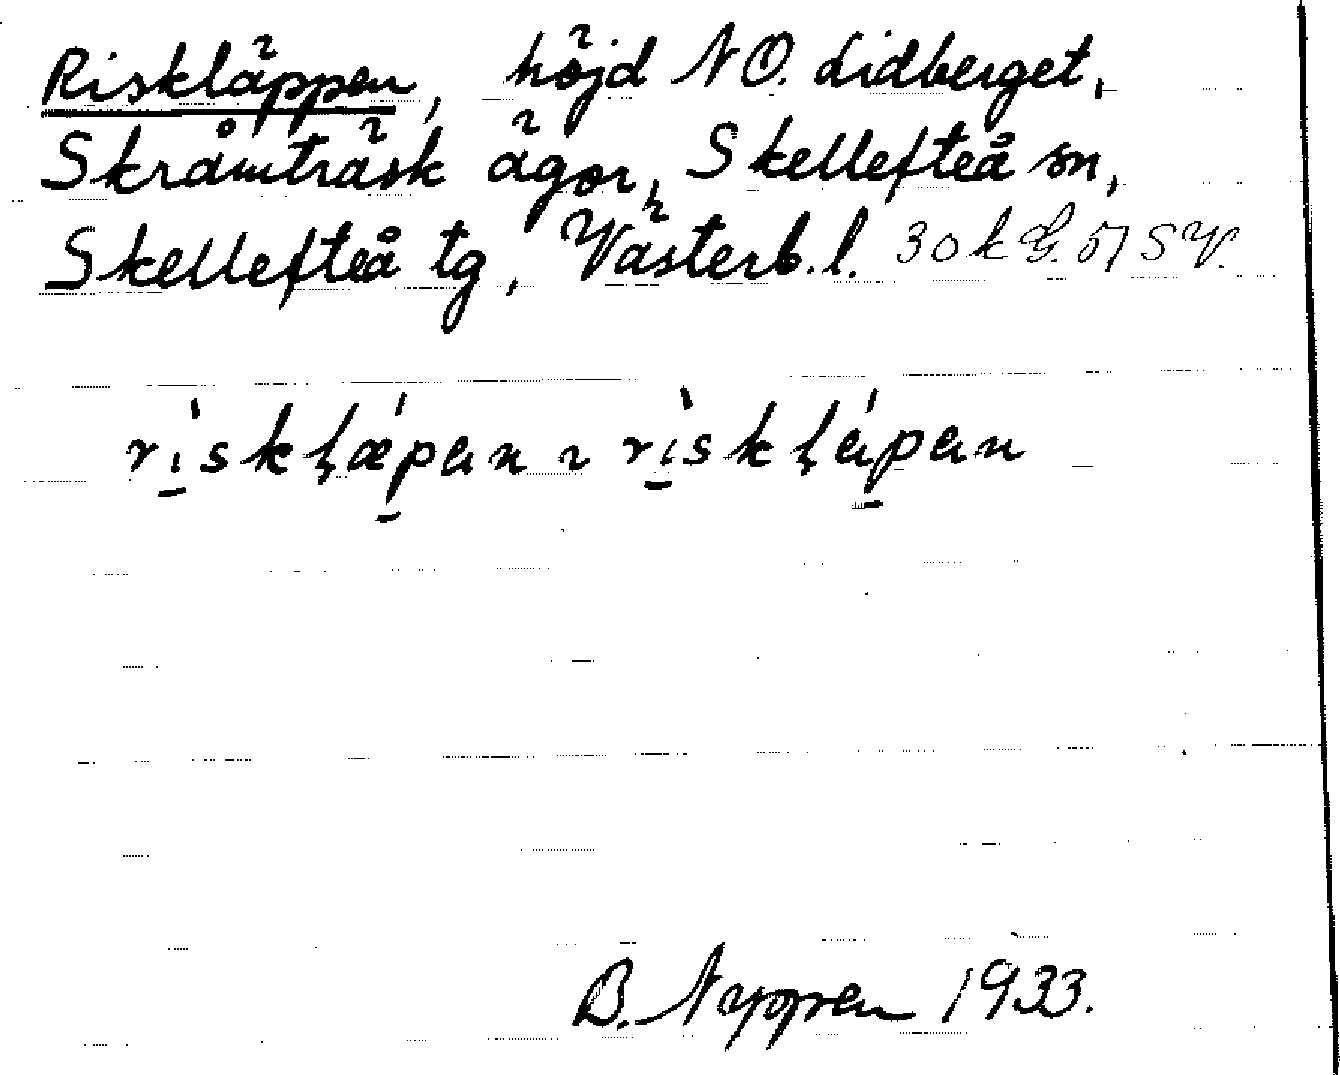 Riskläppen, höjd NO. Lidberget,
Skråmträsk ägor, Skellefteå sn,
Skellefteå tg, Västerb. l. 30 k G. 51 SV.
B. Nyppen 1933.